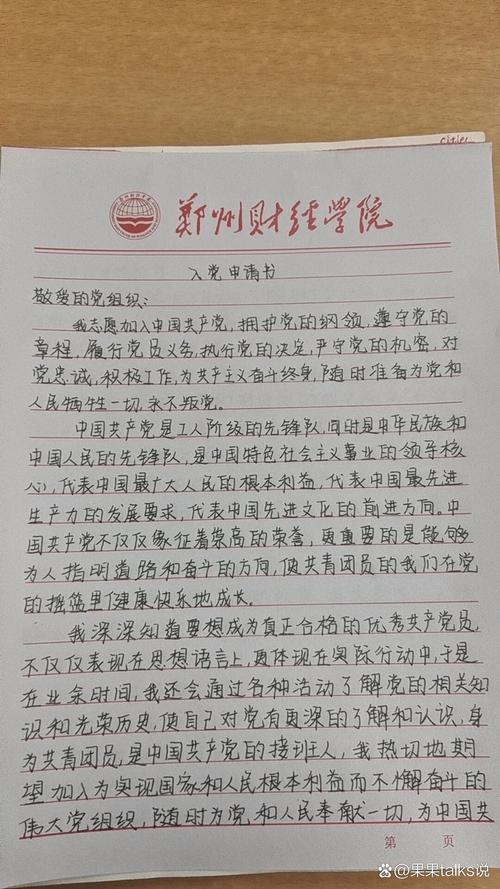 郑州财经学院
入党申请书
敬爱的党组织：
我志愿加入中国共产党，拥护党的纲领，遵守党的
章程，履行党员义务，执行党的决定，严守党的机密，对
党忠诚，积极工作，为共产主义奋斗终身，随时准备为党和
人民牺牲一切，永不叛党。
中国共产党是工人阶级的先锋队，同时是中华民族和
中国人民的先锋队，是中国特色社会主义事业的领导核
心，代表中国最广大人民的根本利益，代表中国最先进
生产力的发展要求，代表中国先进文化的前进方向。中
国共产党不仅仅象征着崇高的荣誉，更重要的是能够
为人指明道路和奋斗的方向，使共青团员的我们在党
的摇篮里健康快乐地成长。
我深深知道要想成为真正合格的优秀共产党员，
不仅仅表现在思想语言上，更体现在实际行动中，于是
在业余时间，我还会通过各种活动了解党的相关知
识和光荣历史，使自己对党有更深的了解和认识，身
为共青团员，是中国共产党的接班人，我热切地期
望加入为实现国家和人民根本利益而不懈奋斗的
伟大党组织，随时为党和人民奉献一切，为中国共
第 页
@果果talks说